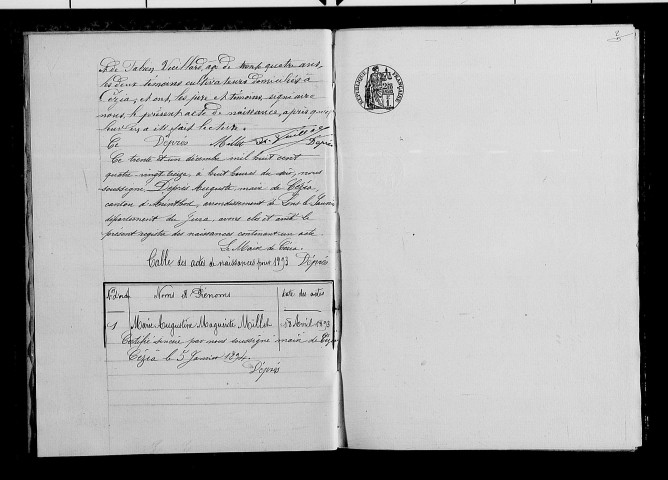 et de Fabien Vuillard, âgé de trente quatre ans,
les deux témoins cultivateurs domiciliés à
Cézia, et ont, les père et témoins, signé avec
nous, le présent acte de naissance, après que
leur en a été fait lecture.
Déprés Millet Vuillard Déprés
Ce trente et un décembre mil huit cent
quatre vingt treize, à huit heures du soir, nous
soussigné, Déprés Auguste, maire de Cézia,
canton d'Arinthod, arrondissement de Lons le Saunier
département du Jura, avons clos et arrêté le
présent registre des naissances contenant un acte.
Le Maire de Cézia.
Table des actes de naissances pour 1893 Déprés
Nos d'ordre Noms et Prénoms date des actes
1 Marie Augustine Marguerite Millet 18 Avril 1893
Certifié sincère par nous soussigné maire de Cézia
Cézia le 5 Janvier 1894
Déprés
2
RÉPUBLIQUE FRANÇAISE